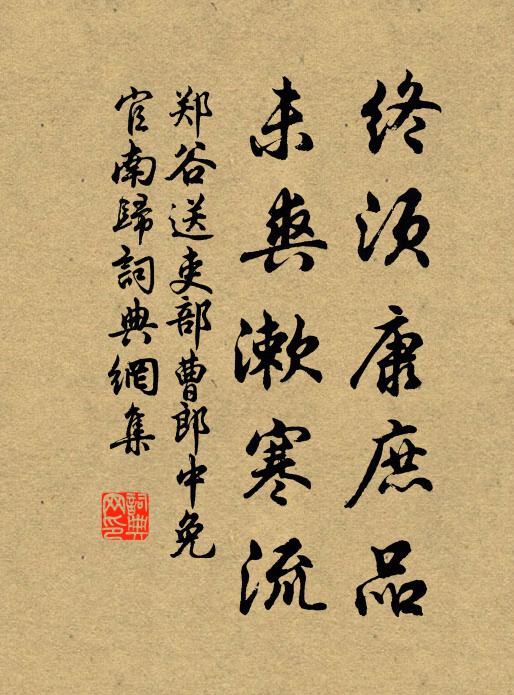 终须康庶品
未爽漱寒流
郑谷送吏部曹郎中免
官南歸詞典網集
詞典
网印